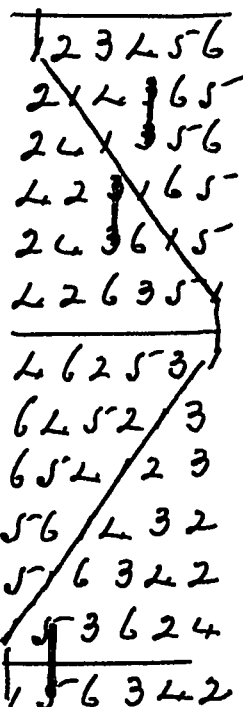 1 2 3 4 5 6
2 1 4 3 6 5
2 4 1 3 5 6
4 2 3 1 6 5
2 4 3 6 1 5
4 2 6 3 5 1
4 6 2 5 3 1
6 4 5 2 1 3
6 5 4 1 2 3
5 6 1 4 3 2
5 1 6 3 4 2
1 5 3 6 2 4
1 5 6 3 4 2